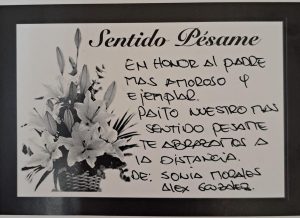 Sentido Pésame
EN HONOR Al PADRE
MAS AMOROSO Y
EJEMPLAR.
PAITO NUESTRO MAS
SENTIDO PESAME
TE ABRAZAMOS A
lA DISTANCIA.
DE: SONIA MORALES
AlEX GONZALEZ.